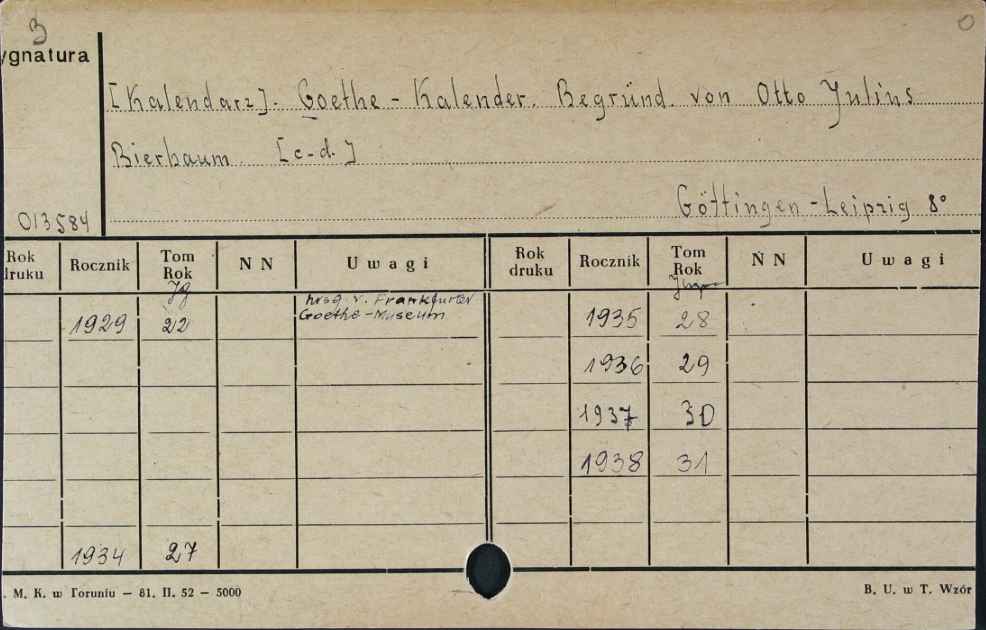 3
0
ygnatura
[Kalendarz]. Goethe - Kalender. Begründ. von Otto Julius
Bierbaum [c-d.]
013584
Göttingen - Leipzig 8°
Rok druku Rocznik Tom Rok N N Uwagi Rok druku Rocznik Tom Rok N N Uwagi
Jg
hrsg. v. Frankfurter
Goethe-Museum
1929 22 1935 28
1936 29
1937 30
1938 31
1934 27
. M. K. w Toruniu — 81. II. 52 — 5000 B. U. w T. Wzór